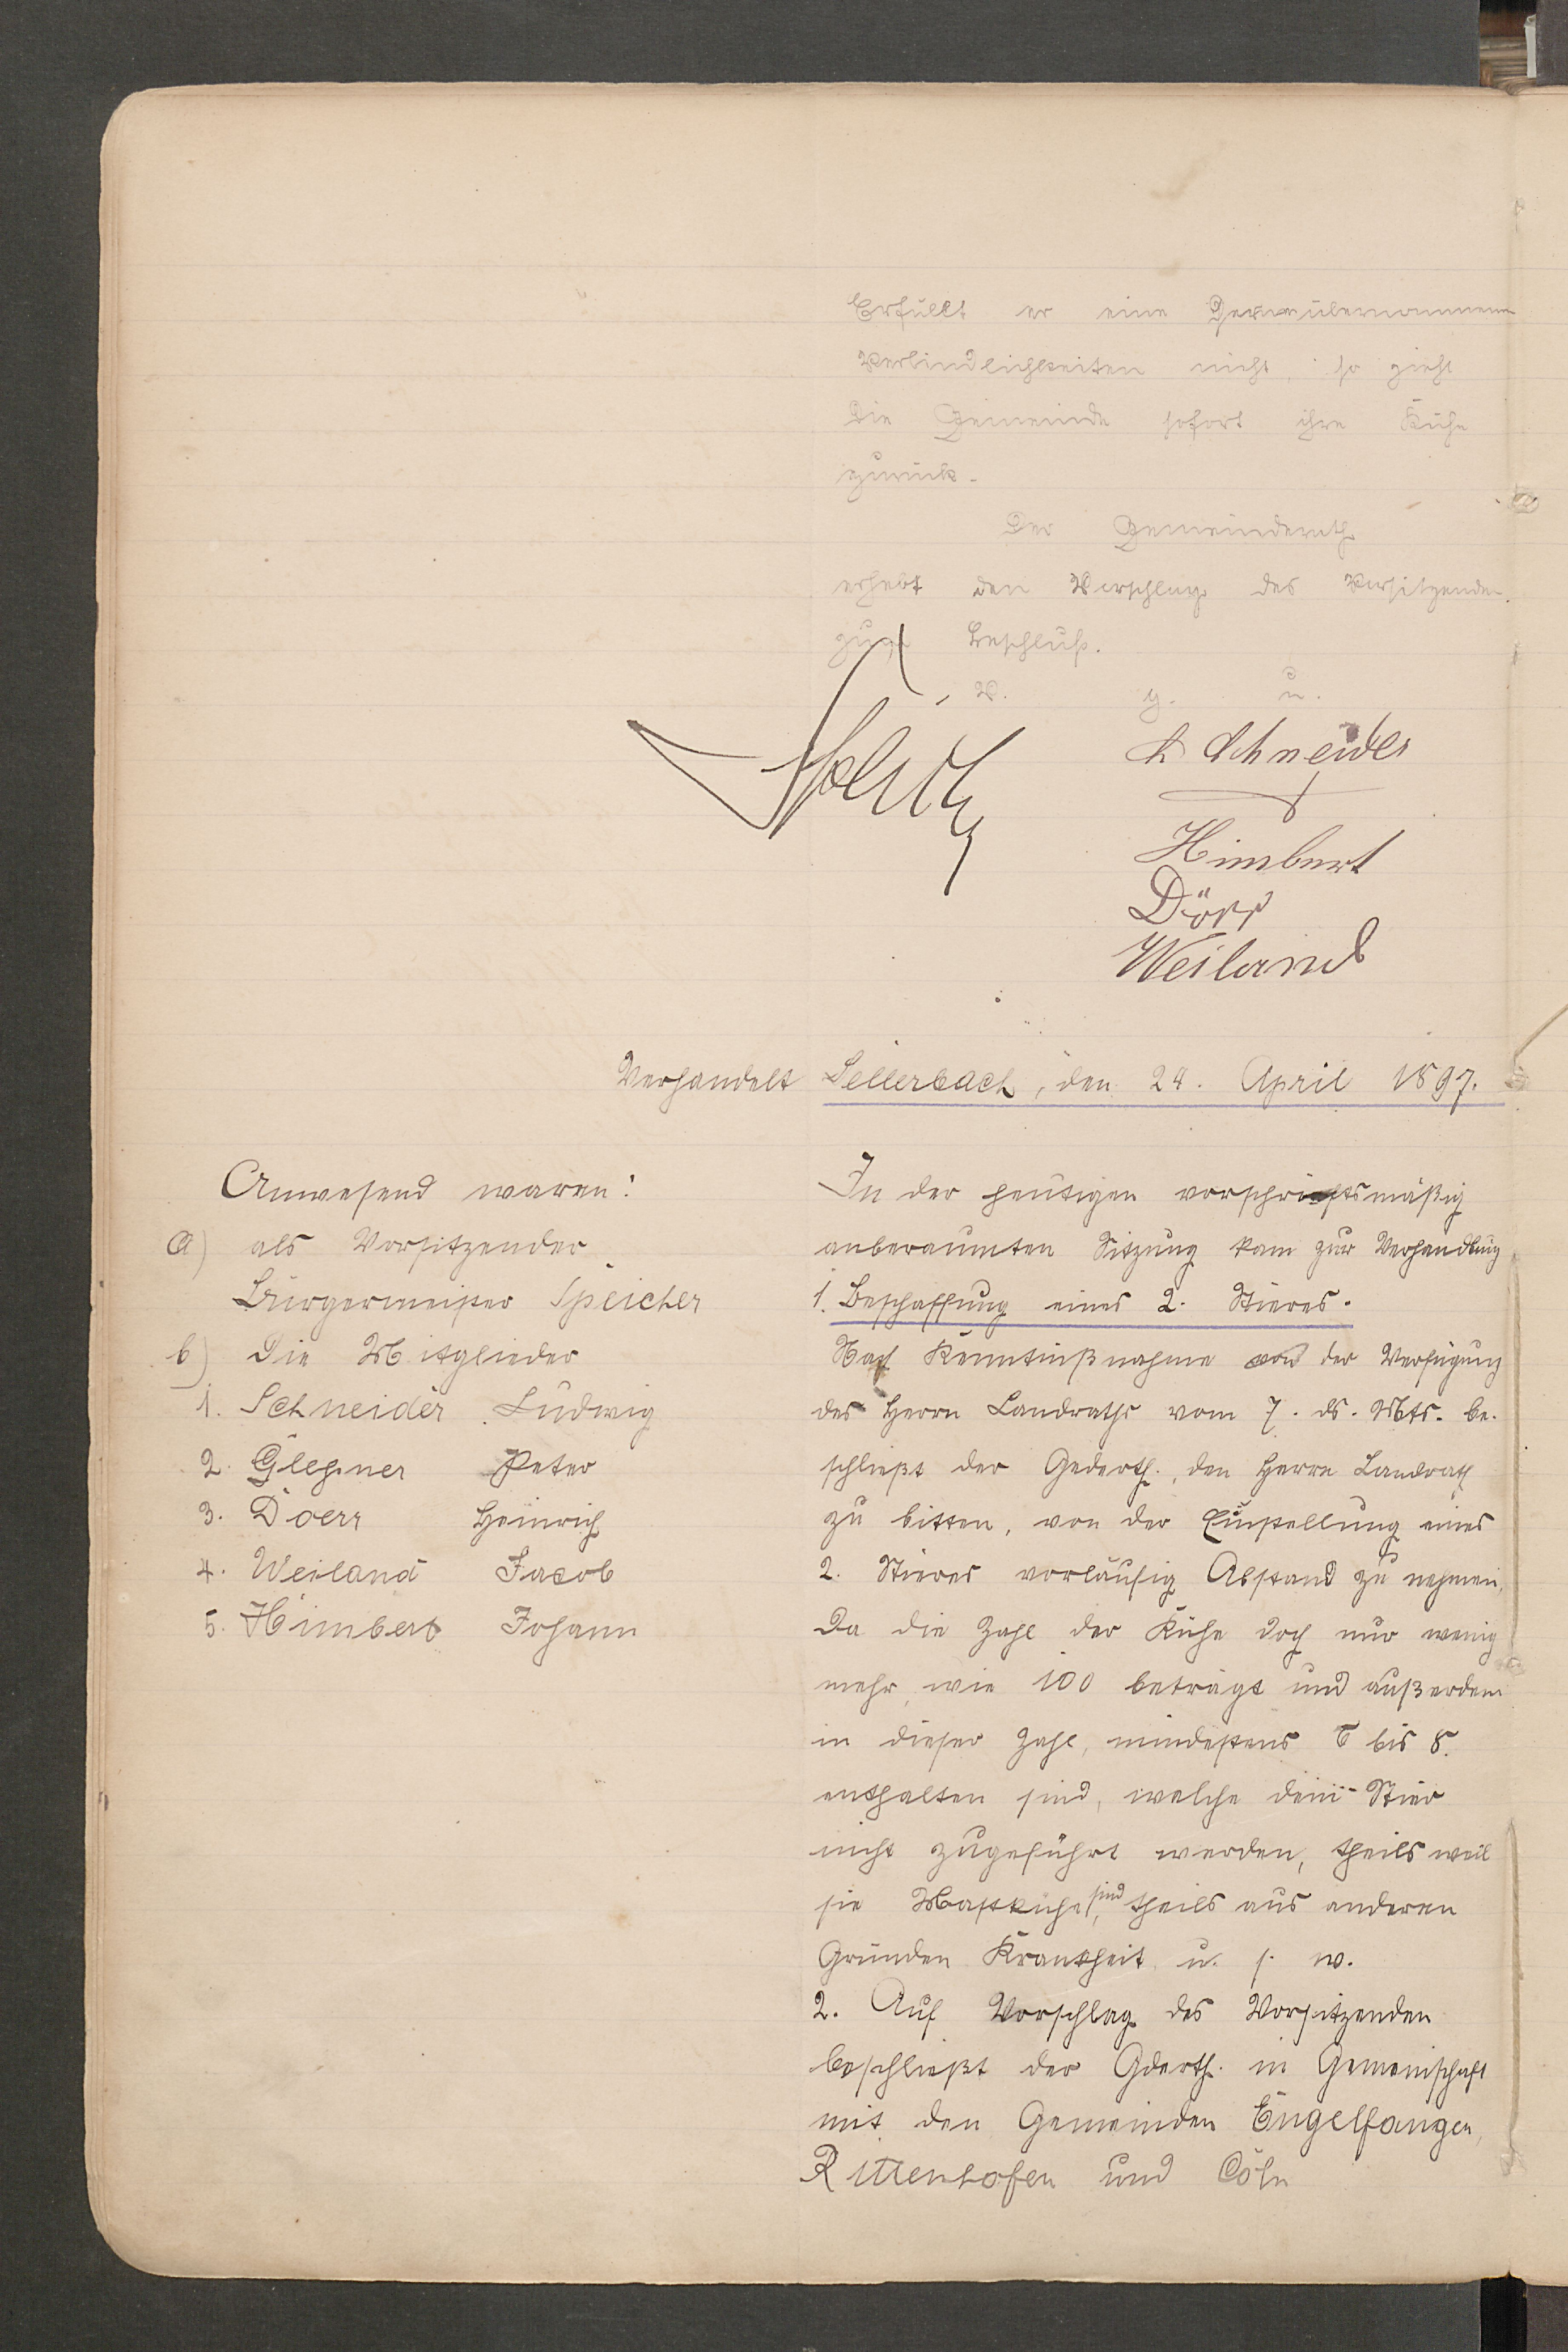 Erfüllt er eine der übernommenen
Verbindlichkeiten nicht, so zieht
die Gemeinde sofort ihre Kühe
zurück.
Der Gemeinderath
erhebt den Vorschlag des Vorsitzenden
zum Beschluß.
V. g. u.
L Schneider
Himbert
Dörr
Weiland
Verhandelt Sellerbach, den 24. April 1897.
Anwesend waren:
a) als Vorsitzender
Bürgermeister Speicher
b) Die Mitglieder
1. Schneider Ludwig
2. Glessner Peter
3. Doerr Heinrich
4. Weiland Jacob
5. Himbert Johann
In der heutigen vorschriftsmäßig
anberaumten Sitzung kam zur Verhandlung
1. Beschaffung eines 2. Stieres.
Nach Kenntnißnahme von der Verfügung
des Herrn Landraths vom 7. ds. Mts. be-
schließt der Gederth., den Herrn Landrath
zu bitten, von der Einstellung eines
2. Stieres vorläufig Abstand zu nehmen,
Da die Zahl der Kühe doch nur wenig
mehr, wie 100 beträgt und außerdem
in dieser Zahl, mindestens 6 bis 8.
enthalten sind, welche dem Stier
nicht zugeführt werden, theils weil
sie Mastkühe sind, theils aus anderen
Gründen Krankheit u. s. w.
2. Auf Vorschlag des Vorsitzenden
beschließt der Gderth. in Gemeinschaft
mit den Gemeinden Engelfangen,
Rittenhofen und Cöln